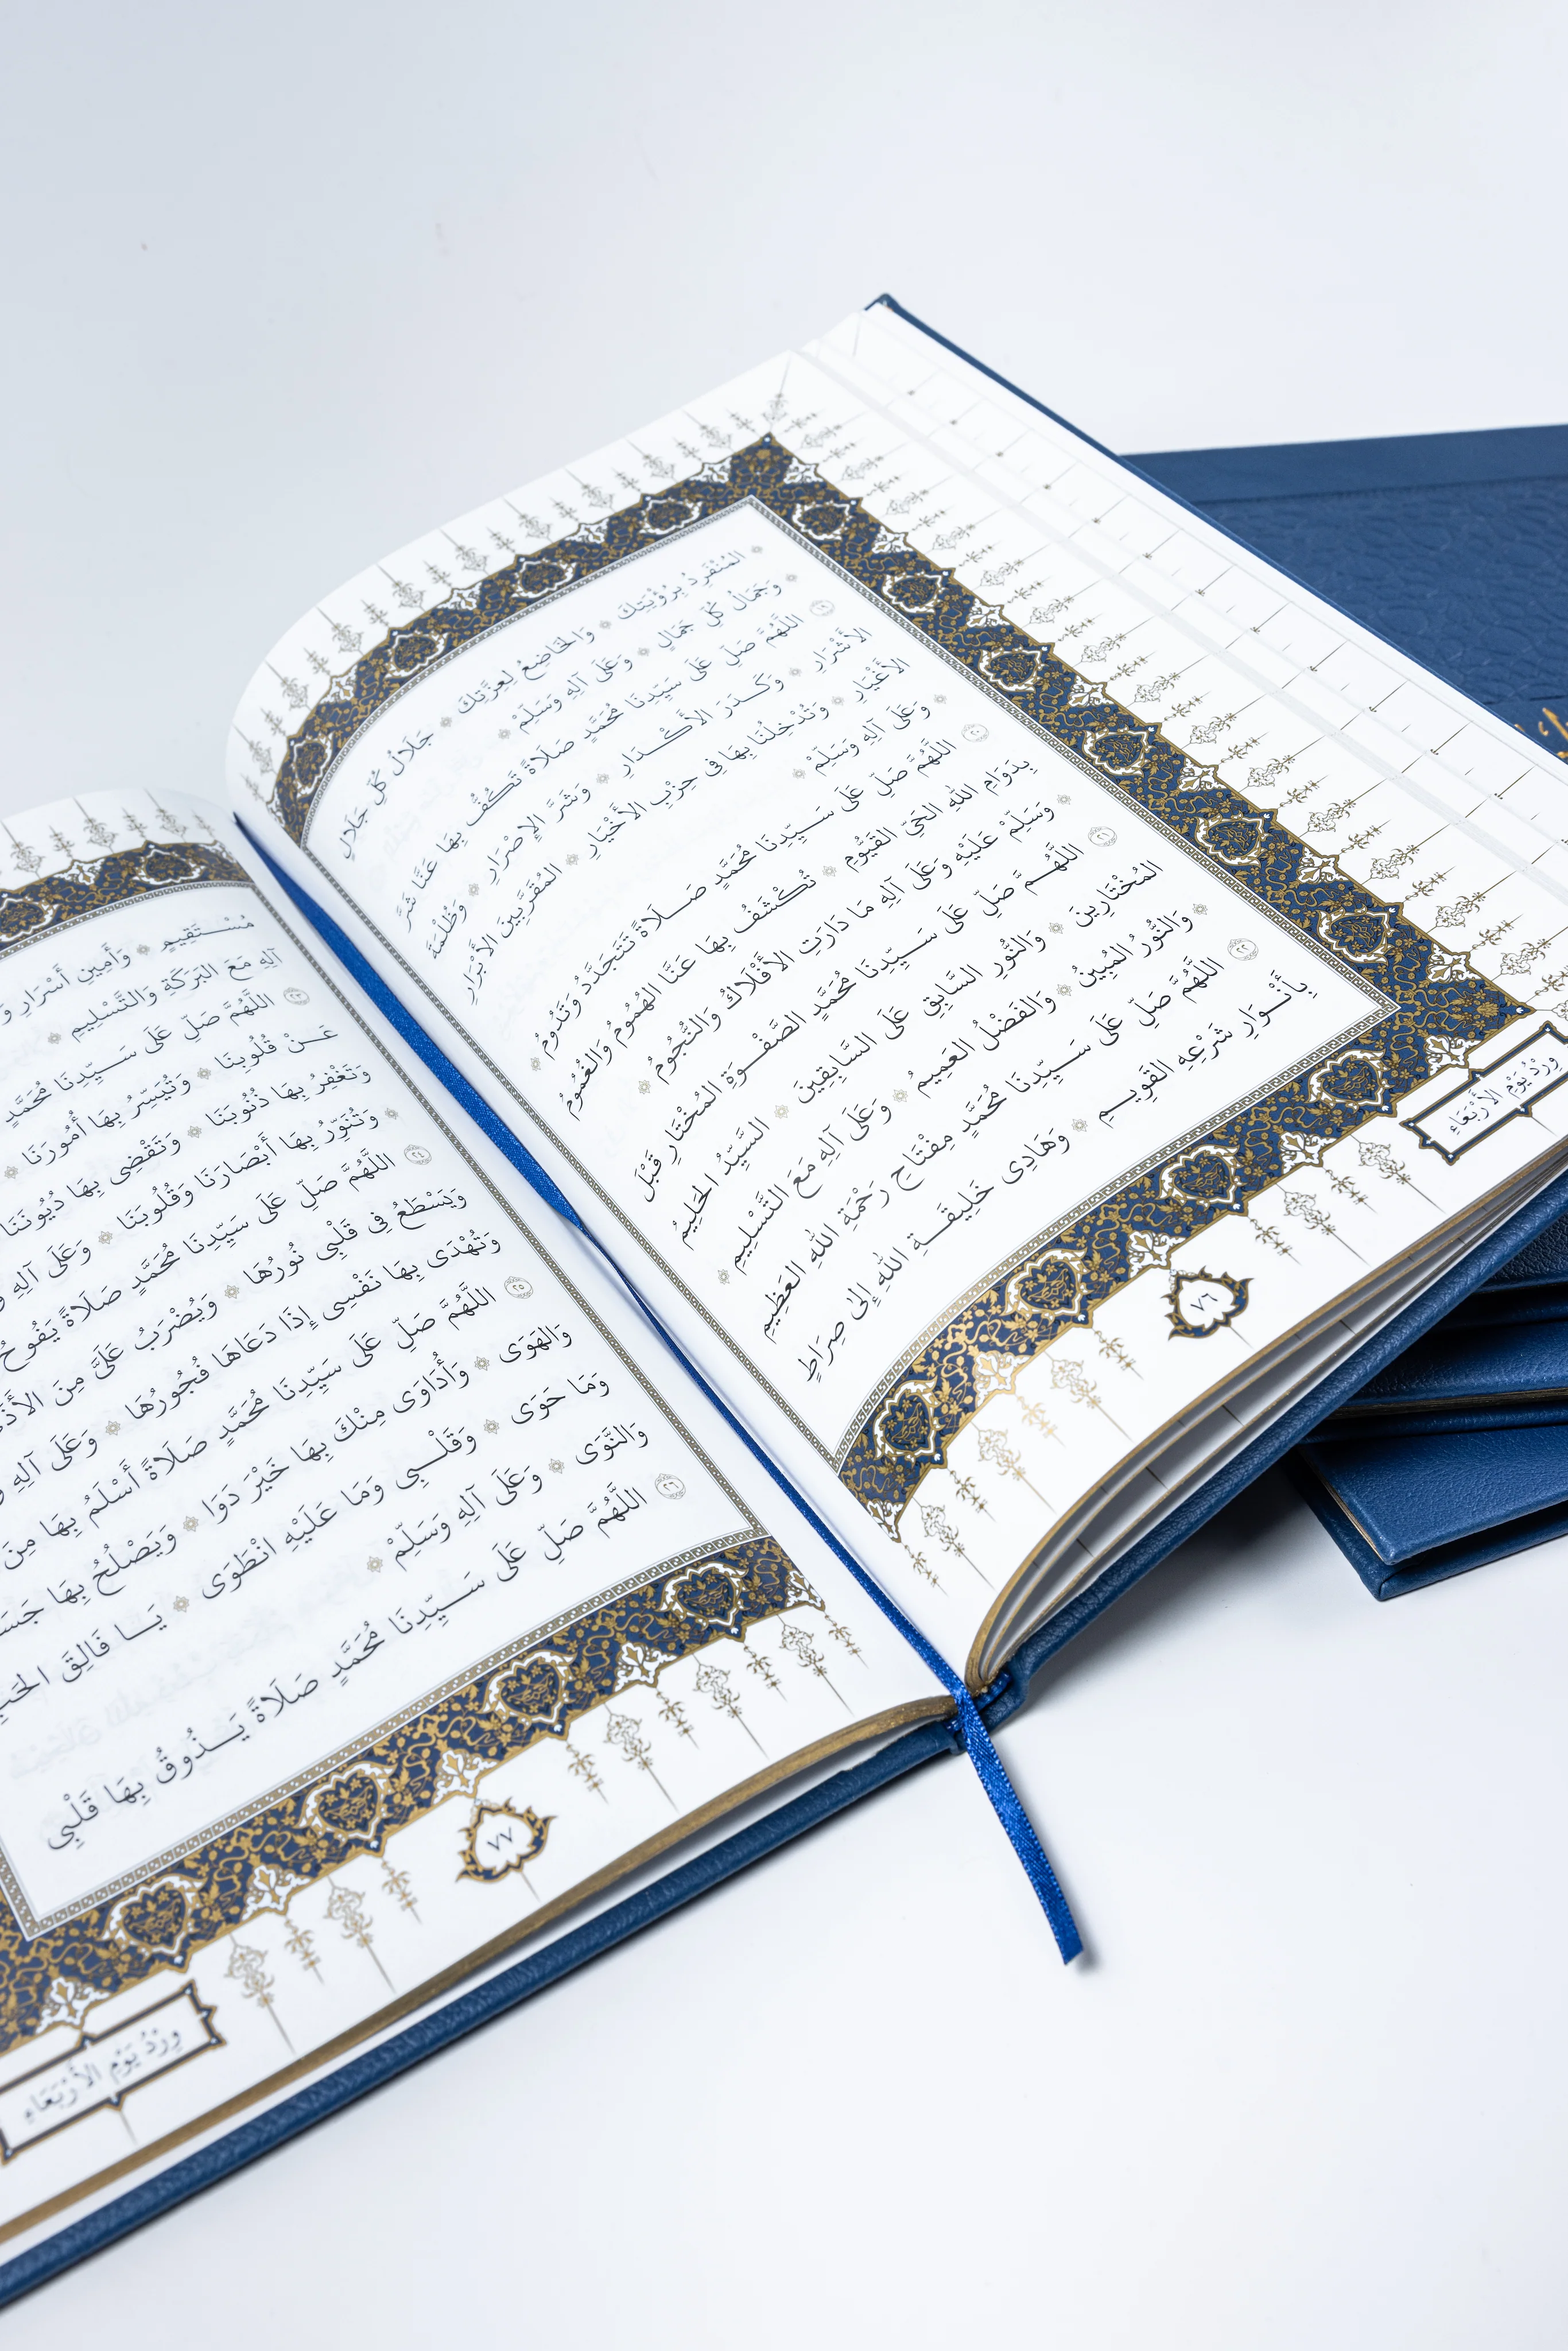 المُنْفَرِدُ بِرُؤْيَتِكَ ۞ وَالخَاضِعُ لِعِزَّتِكَ ۞ جَلَالُ كُلِّ جَلَالٍ
۞ وَجَمَالُ كُلِّ جَمَالٍ ۞ وَعَلَى آلِهِ وَسَلِّمْ ۞
١٩ اللَّهُمَّ صَلِّ عَلَى سَيِّدِنَا مُحَمَّدٍ صَلَاةً تَكُفُّ بِهَا عَنَّا شَرَّ
الأَشْرَارِ ۞ وَكَدَرَ الأَكْدَارِ ۞ وَشَرَّ الإِصْرَارِ ۞ وَظُلْمَةَ
الأَغْيَارِ ۞ وَتُدْخِلُنَا بِهَا فِى حِزْبِ الأَخْيَارِ ۞ المُقَرَّبِينَ الأَبْرَارِ
۞ وَعَلَى آلِهِ وَسَلِّمْ ۞
٢٠ اللَّهُمَّ صَلِّ عَلَى سَيِّدِنَا مُحَمَّدٍ صَلَاةً تَتَجَدَّدُ وَتَدُومُ ۞
بِدَوَامِ اللهِ الحَيِّ القَيُّومِ ۞ تُكْشَفُ بِهَا عَنَّا الهُمُومُ وَالغُمُومُ
۞ وَسَلِّمْ عَلَيْهِ وَعَلَى آلِهِ مَا دَارَتِ الأَفْلَاكُ وَالنُّجُومُ ۞
٢١ اللَّهُمَّ صَلِّ عَلَى سَيِّدِنَا مُحَمَّدٍ الصَّفْوَةِ المُخْتَارِ قَبْلَ
المُخْتَارِينَ ۞ وَالنُّورِ السَّابِقِ عَلَى السَّابِقِينَ ۞ السَّيِّدُ الحَلِيمُ
۞ وَالنُّورُ المُبِينُ ۞ وَالفَضْلُ العَمِيمُ ۞ وَعَلَى آلِهِ مَعَ التَّسْلِيمِ ۞
٢٢ اللَّهُمَّ صَلِّ عَلَى سَيِّدِنَا مُحَمَّدٍ مِفْتَاحِ رَحْمَةِ اللهِ العَظِيمِ
بِأَنْوَارِ شَرْعِهِ القَوِيمِ ۞ وَهَادِى خَلِيقَةِ اللهِ إِلَى صِرَاطٍ
وِرْدُ يَوْمِ الأَرْبَعَاءِ
٧٦
مُسْتَقِيمٍ ۞ وَأَمِينِ أَسْرَارِ
آلِهِ مَعَ البَرَكَةِ وَالتَّسْلِيمِ ۞
٢٣ اللَّهُمَّ صَلِّ عَلَى سَيِّدِنَا مُحَمَّدٍ
عَنْ قُلُوبِنَا ۞ وَتُيَسِّرُ بِهَا أُمُورَنَا ۞
وَتَغْفِرُ بِهَا ذُنُوبَنَا ۞ وَتَقْضِى بِهَا دُيُونَنَا
۞ وَتُنَوِّرُ بِهَا أَبْصَارَنَا وَقُلُوبَنَا ۞ وَعَلَى آلِهِ
٢٤ اللَّهُمَّ صَلِّ عَلَى سَيِّدِنَا مُحَمَّدٍ صَلَاةً يَفُوحُ
وَيَسْطَعُ فِى قَلْبِى نُورُهَا ۞ وَيُضْرَبُ عَلَىَّ مِنَ
وَتُهْدَى بِهَا نَفْسِى إِذَا دَعَاهَا فُجُورُهَا ۞ وَعَلَى آلِهِ
٢٥ اللَّهُمَّ صَلِّ عَلَى سَيِّدِنَا مُحَمَّدٍ صَلَاةً أَسْلَمُ بِهَا مِنَ
وَالهَوَى ۞ وَأُدَاوَى مِنْكَ بِهَا خَيْرَ دَوَا ۞ وَيَصْلُحُ بِهَا
وَمَا حَوَى ۞ وَقَلْبِى وَمَا عَلَيْهِ انْطَوَى ۞ يَا فَالِقَ الحَبِّ
وَالنَّوَى ۞ وَعَلَى آلِهِ وَسَلِّمْ ۞
٢٦ اللَّهُمَّ صَلِّ عَلَى سَيِّدِنَا مُحَمَّدٍ صَلَاةً يَذُوقُ بِهَا قَلْبِى
٧٧
وِرْدُ يَوْمِ الأَرْبَعَاءِ